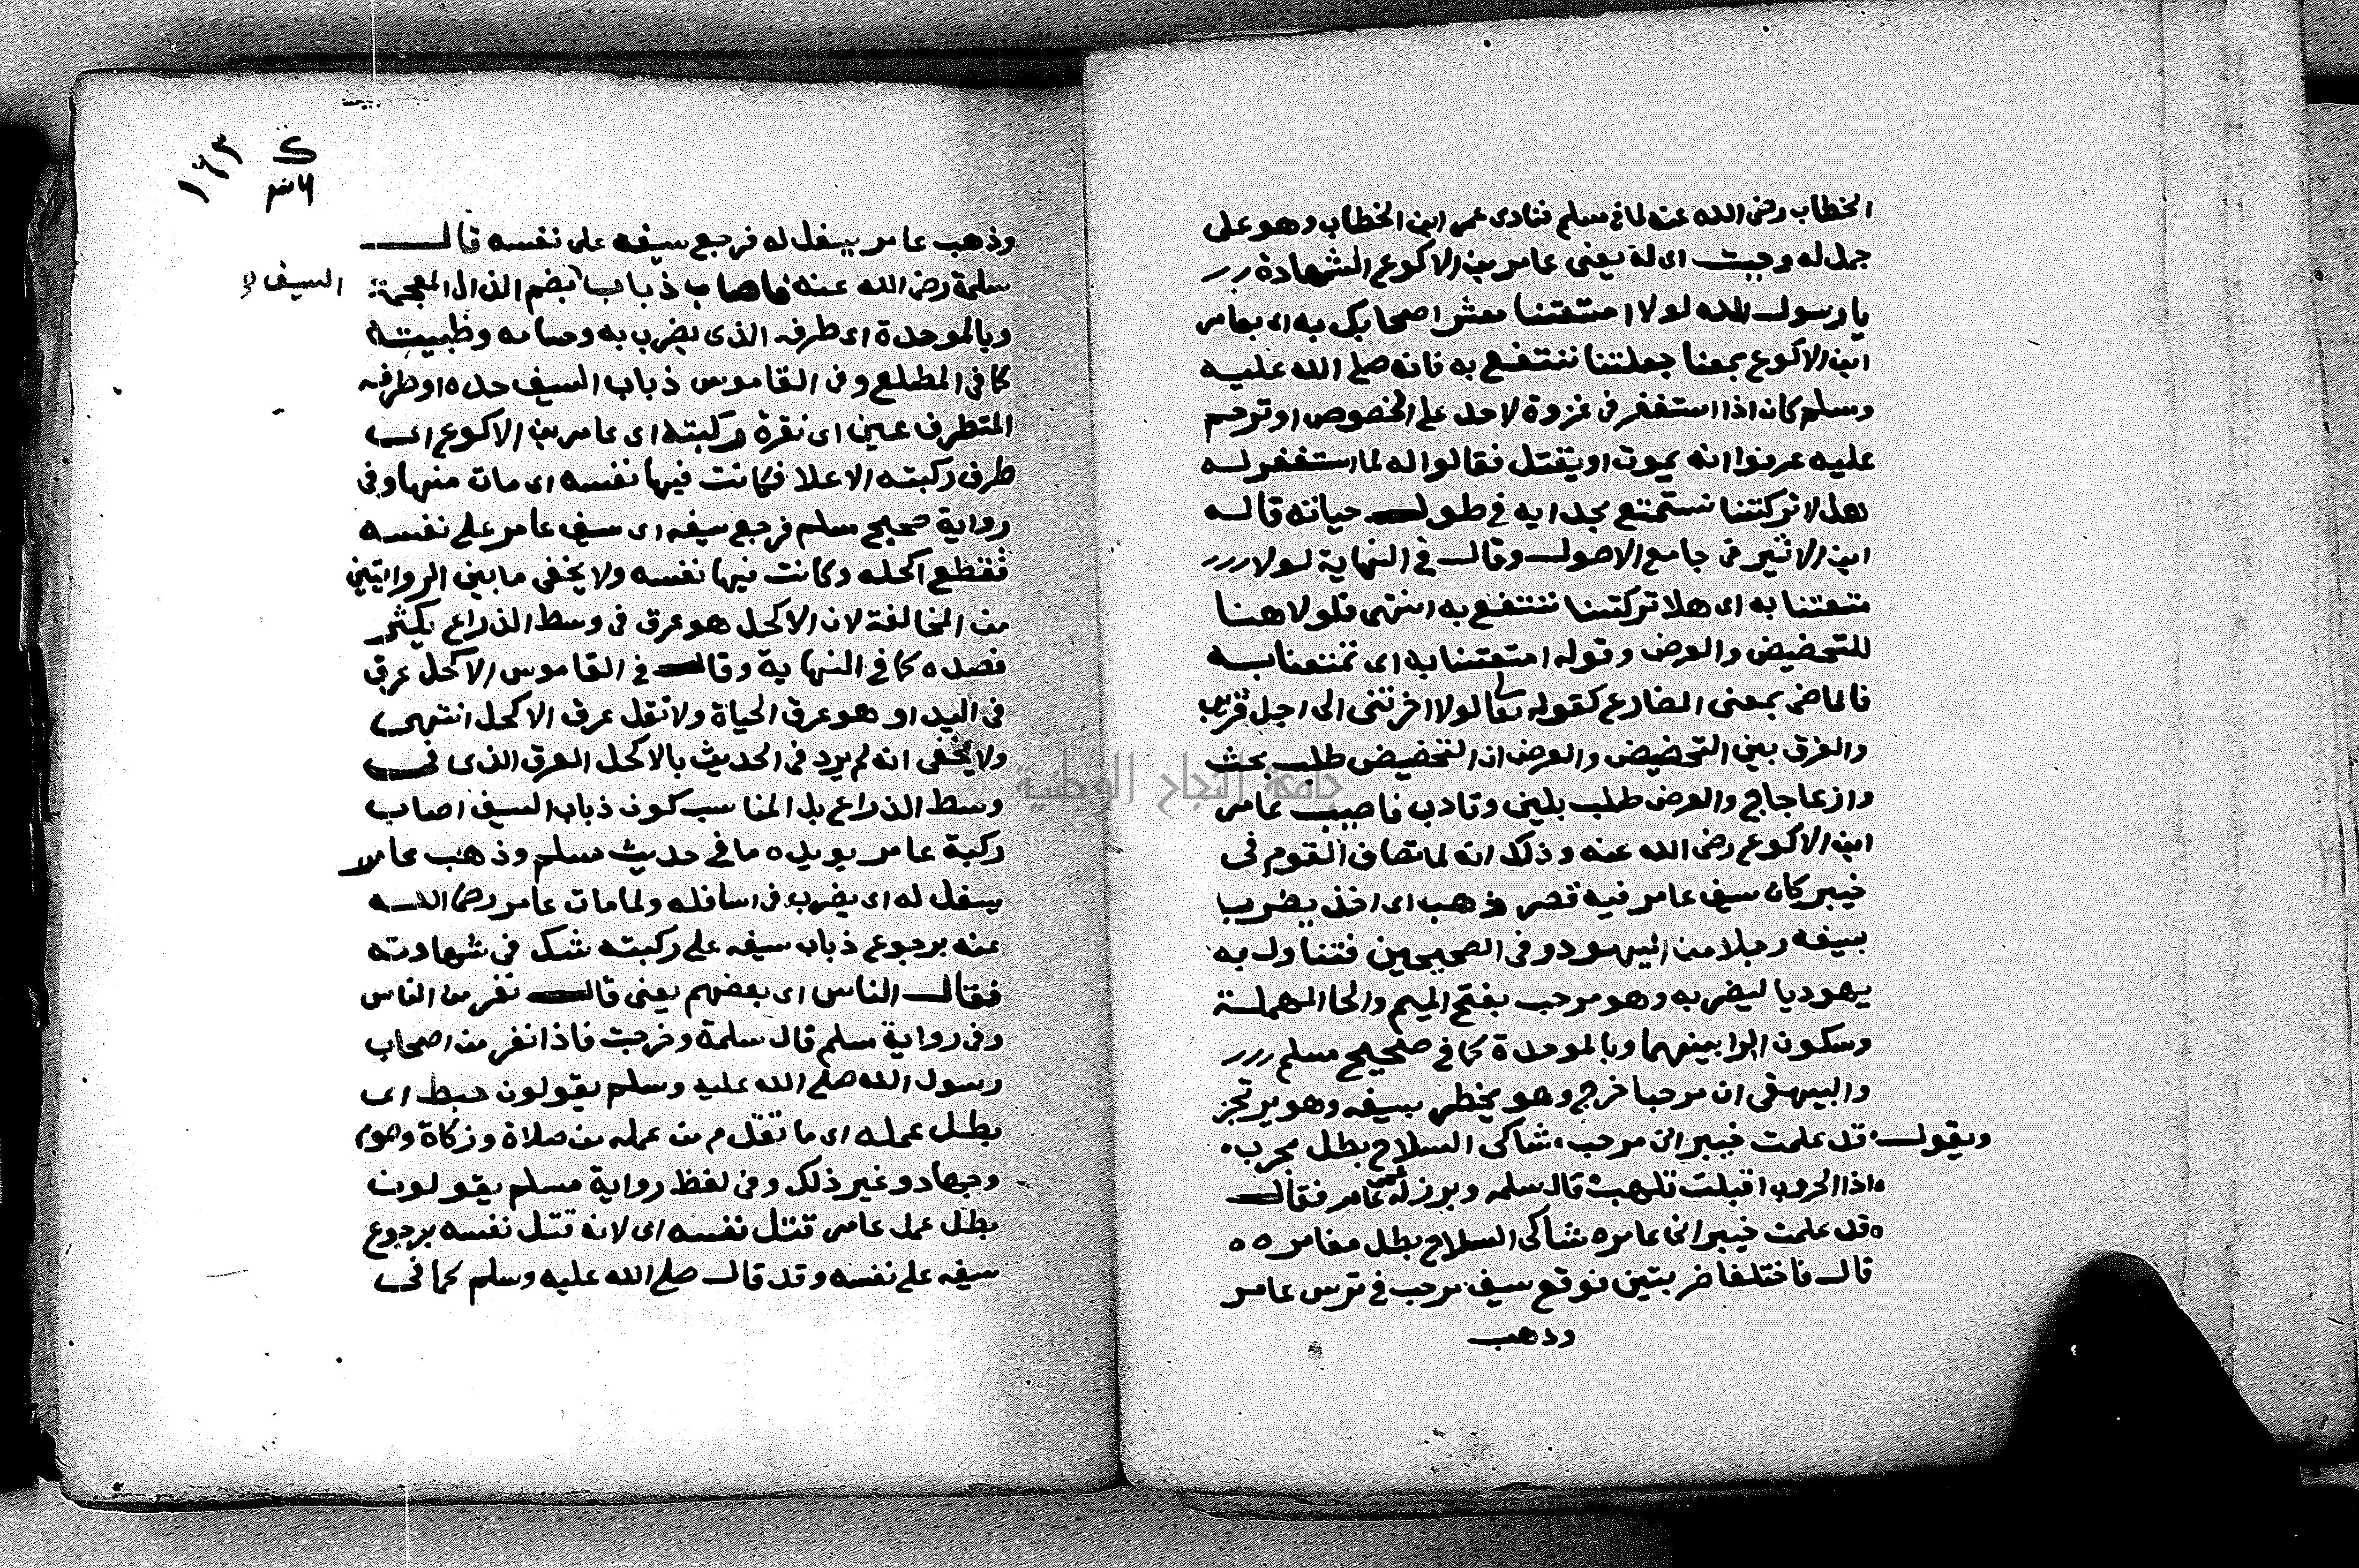 الخطاب رضى الله عنه لما في مسلم فنادى عمر ابن الخطاب وهو على
جمل له وجبت اى له يعنى عامر بن الاكوع الشهادة
يا رسول الله لولا امتعتنا معشر اصحابك به اى بعامر
ابن الاكوع بمعنا جعلتنا ننتفع به فانه صلى الله عليه
وسلم كان اذا استغفر فى غزوة لاحد على الخصوص او ترحم
عليه عرفوا انه يموت او يقتل فقالوا له لما استغفر له
هل لا تركتنا نستمتع بحدايه في طول حياته قاله
ابن الاثير فى جامع الاصول وقال في النهاية لولا
متعتنا به اى هلا تركتنا ننتفع به انتهى فلولا هنا
للتحضيض والعرض وقوله امتعتنا به اى تمتعنا به
فالماضى بمعنى المضارع كقوله تعالى لولا اخرتنى الى اجل قريب
والفرق بين التحضيض والعرض ان التحضيض طلب بحث
وازعاجاج والعرض طلب بلين وتادب فاصيب عامر
ابن الاكوع رضى الله عنه وذلك انه لما تصاف القوم فى
خيبر كان سيف عامر فيه قصر وذهب اى اخذ يضرب
بسيفه رجلا من اليهود وفى الصحيحين فتناول به
يهوديا ليضربه وهو مرحب بفتح الميم والحا المهملة
وسكون الرا بينهما وبالموحدة كما في صحيح مسلم
والبيهقى ان مرحبا خرج وهو يخطر بسيفه وهو يرتجز
ويقول قد علمت خيبر انى مرحب شاكى السلاح بطل مجرب
اذا الحروب اقبلت تلهب قال سلمه وبرز له عمى عامر فقال
قد علمت خيبر انى عامر شاكى السلاح بطل مغامر
قال فاختلفا ضربتين فوقع سيف مرحب في ترس عامر
وذهب
١٦٣
وذهب عامر يسفل له فرجع سيفه على نفسه قال
سلمة رضى الله عنه فاصاب ذباب بضم الذال المعجمة
السيف
وبالموحدة اى طرفه الذى يضرب به وحسامه وظبيته
كما فى المطلع وفى القاموس ذباب السيف حده او طرفه
المتطرف عين اى نقرة ركبته اى عامر بن الاكوع اى
طرف ركبته الاعلا فكانت فيها نفسه اى مات منها وفى
رواية صحيح مسلم فرجع سيفه اى سيف عامر على نفسه
فقطع اكحله وكانت فيها نفسه ولا يخفى ما بين الروايتين
من المخالفة لان الاكحل هو عرق فى وسط الذراع يكثر
فصده كما في النهاية وقال في القاموس الاكحل عرق
فى اليد او هو عرق الحياة ولا تقل عرق الاكحل انتهى
ولا يخفى انه لم يرد فى الحديث بالاكحل العرق الذى فى
وسط الذراع بل المناسب كون ذباب السيف اصاب
ركبة عامر يويده ما في حديث مسلم وذهب عامر
يسفل له اى يضرب فى اسافله ولما مات عامر رضى الله
عنه برجوع ذباب سيفه على ركبته شك فى شهادته
فقال الناس اى بعضهم يعنى قال نفر من الناس
وفى رواية مسلم قال سلمة وخرجت فاذا نفر من اصحاب
رسول الله صلى الله عليه وسلم يقولون حبط اى
بطل عمله اى ما تقدم من عمله من صلاة وزكاة وصوم
وجهاد وغير ذلك وفى لفظ رواية مسلم يقولون
بطل عمل عامر قتل نفسه اى لانه قتل نفسه برجوع
سيفه على نفسه وقد قال صلى الله عليه وسلم كما فى
جامعة النجاح الوطنية